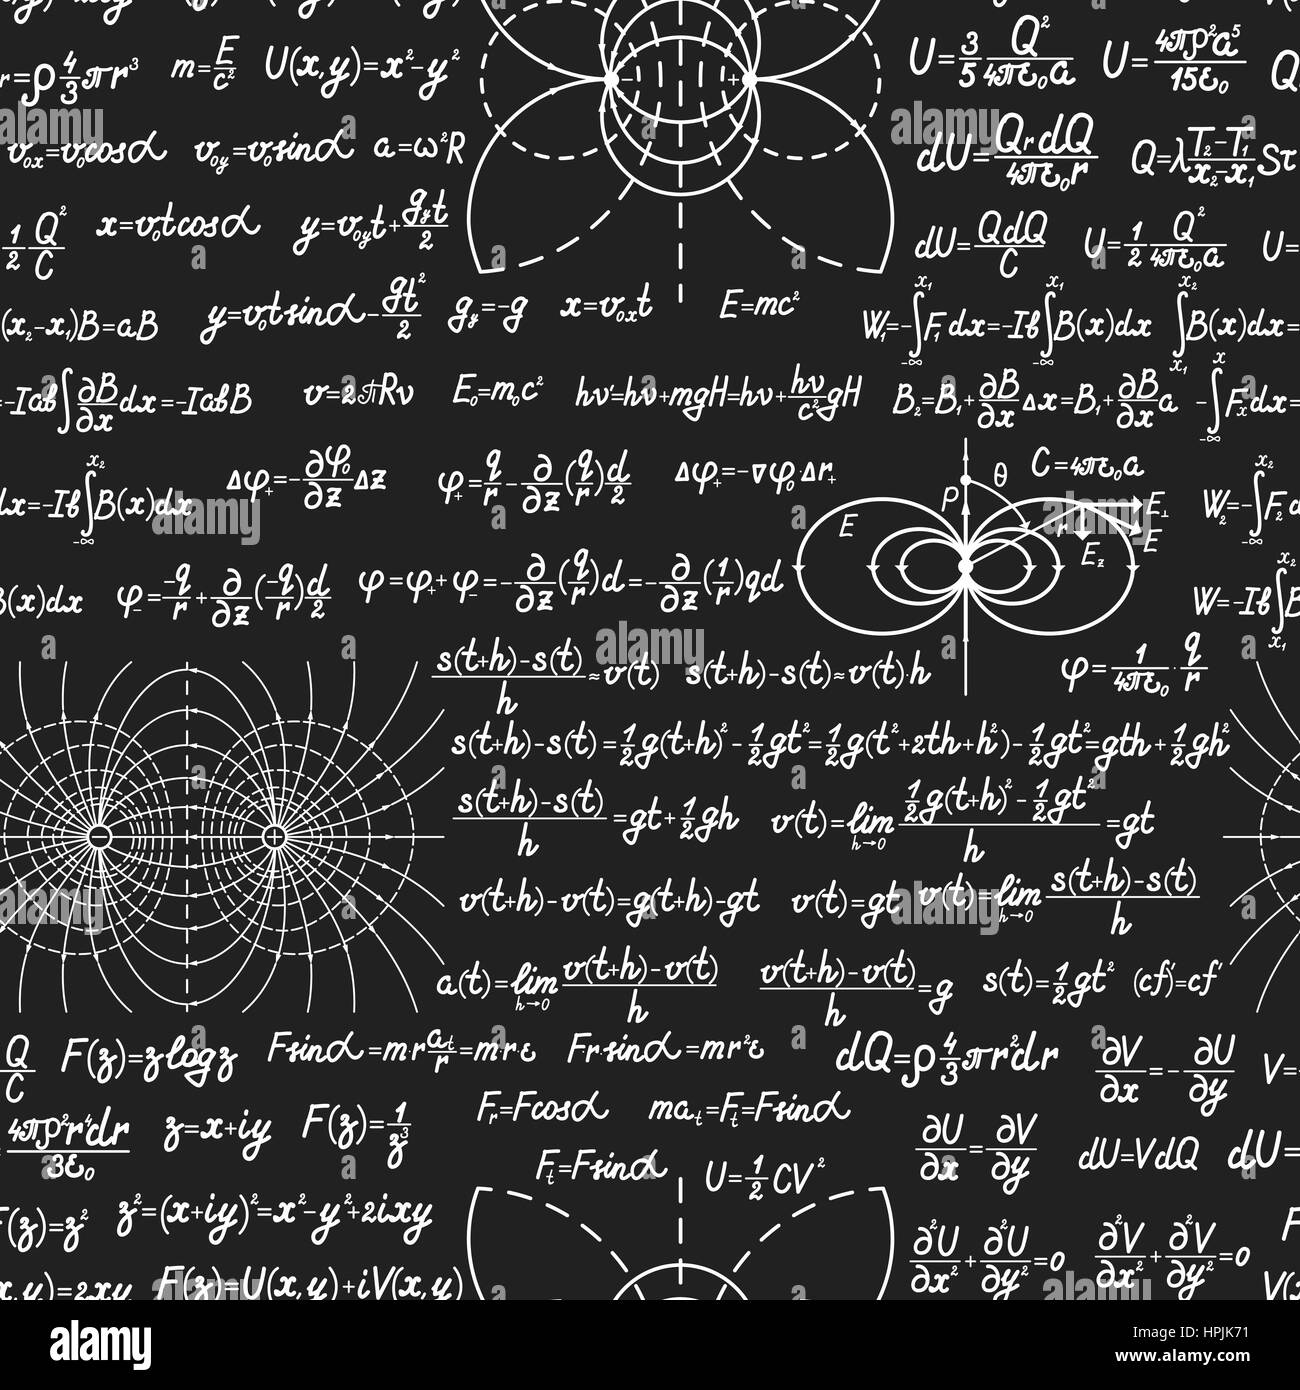 r=ρ 4/3 πr³   m=E/c²   U(x,y)=x²-y²   - +   U=3/5 Q²/4πε₀a   U=4πρ²a⁵/15ε₀   Q
v₀ₓ=v₀cosα   v₀y=v₀sinα   a=ω²R   dU=QrdQ/4πε₀r   Q=λ T₂-T₁/x₂-x₁ Sτ
1/2 Q²/C   x=v₀tcosα   y=v₀yt+gyt/2   dU=QdQ/C   U=1/2 Q²/4πε₀a   U=
(x₂-x₁)B=aB   y=v₀tsinα-gt²/2   gy=-g   x=v₀ₓt   E=mc²   W₁=-∫F₁dx=-Ib∫B(x)dx   ∫B(x)dx=
-∞ x₁   -∞ x₁   x₁ x₂
=-Iab∫∂B/∂x dx=-IabB   v=2πRν   E₀=m₀c²   hν'=hν+mgH=hν+hν/c² gH   B₂=B₁+∂B/∂x Δx=B₁+∂B/∂x a   -∫Fₓdx=
-∞ x
dx=-Ib∫B(x)dx   Δφ₊=-∂φ₀/∂z Δz   φ₊=q/r-∂/∂z(q/r)d/2   Δφ₊=-∇φ₀·Δr₊   C=4πε₀a   W₂=-∫F₂d
-∞ x₂   -∞ x₂
p θ E r E⊥ E Ez
B(x)dx   φ₋=-q/r+∂/∂z(-q/r)d/2   φ=φ₊+φ₋=-∂/∂z(q/r)d=-∂/∂z(1/r)qd   W=-Ib∫B
x₁ x₂
s(t+h)-s(t)/h≈v(t)   s(t+h)-s(t)≈v(t)·h   φ=1/4πε₀·q/r
s(t+h)-s(t)=1/2g(t+h)²-1/2gt²=1/2g(t²+2th+h²)-1/2gt²=gth+1/2gh²
s(t+h)-s(t)/h=gt+1/2gh   v(t)=lim h→0 1/2g(t+h)²-1/2gt²/h=gt
v(t+h)-v(t)=g(t+h)-gt   v(t)=gt   v(t)=lim h→0 s(t+h)-s(t)/h
a(t)=lim h→0 v(t+h)-v(t)/h   v(t+h)-v(t)/h=g   s(t)=1/2gt²   (cf)'=cf'
Q/C   F(z)=zlogz   Fsinα=m·r aₜ/r=m·r·ε   F·r·sinα=mr²ε   dQ=ρ 4/3 πr²dr   ∂V/∂x=-∂U/∂y   V=
4πρ²r⁴dr/3ε₀   z=x+iy   F(z)=1/z³   Fr=Fcosα   maₜ=Fₜ=Fsinα   ∂U/∂x=∂V/∂y   dU=VdQ   dU=
Fₜ=Fsinα   U=1/2CV²
F(z)=z²   z²=(x+iy)²=x²-y²+2ixy   ∂²U/∂x²+∂²U/∂y²=0   ∂²V/∂x²+∂²V/∂y²=0   F
x,y)=2xy   F(z)=U(x,y)+iV(x,y)   V(x
alamy
Image ID: HPJK71
www.alamy.com